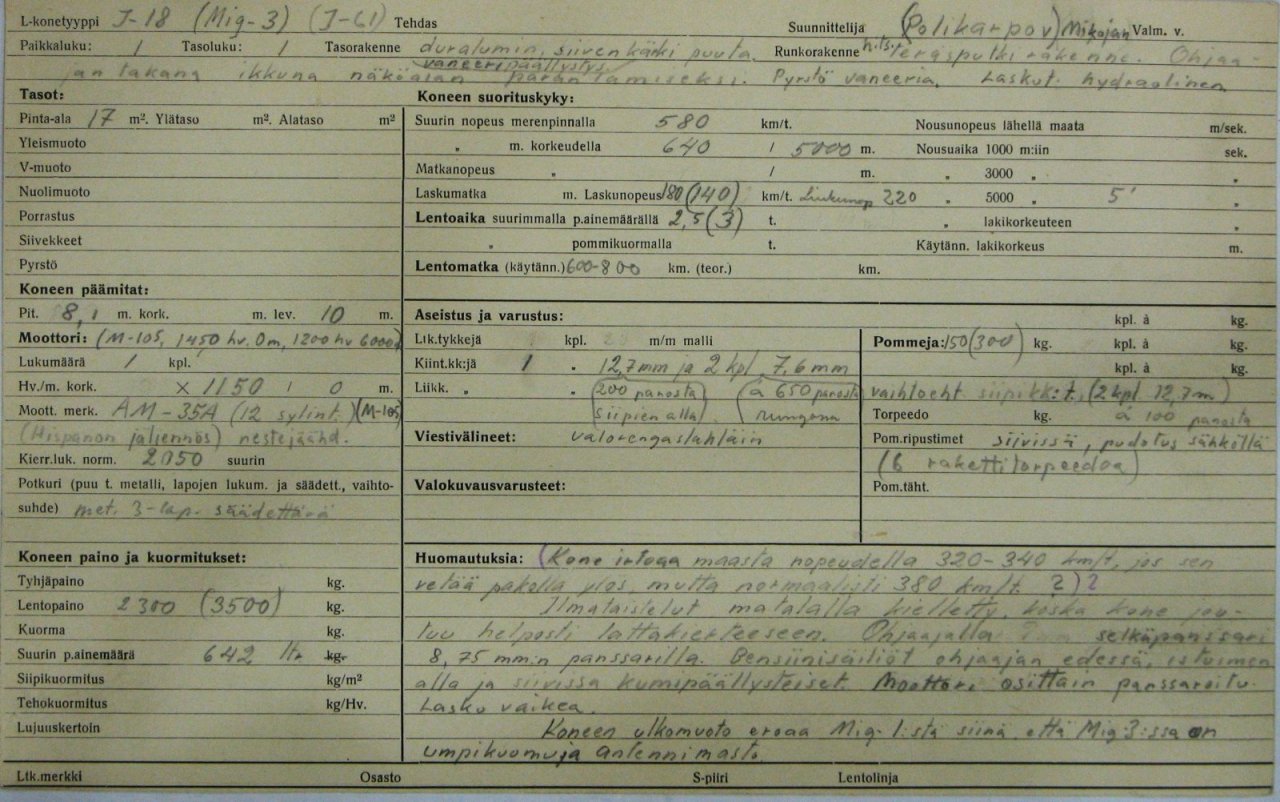 L-konetyyppi J-18 (Mig-3) (J-61) Tehdas Suunnittelija (Polikarpov) Mikojan Valm. v.
Paikkaluku: 1 Tasoluku: 1 Tasorakenne duralumin, siiven kärki puuta. Runkorakenne hitsi. Teräsputkirakenne. Ohjaa-
vaneeripäällystys
jan takana ikkuna näköalan parantamiseksi. Pyrstö vaneeria. Laskut. hydraolinen
Tasot: Koneen suorituskyky:
Pinta-ala 17 m². Ylätaso m². Alataso m² Suurin nopeus merenpinnalla 580 km/t. Nousunopeus lähellä maata m/sek.
Yleismuoto „ m. korkeudella 640 / 5000 m. Nousuaika 1000 m:iin sek.
V-muoto Matkanopeus „ / m. „ 3000 „ „
Nuolimuoto Laskumatka m. Laskunopeus 180 (140) km/t. Liukunop 220 „ 5000 „ 5' „
Porrastus Lentoaika suurimmalla p.ainemäärällä 2,5 (3) t. „ lakikorkeuteen „
Siivekkeet „ pommikuormalla t. Käytänn. lakikorkeus m.
Pyrstö Lentomatka (käytänn.) 600-800 km. (teor.) km.
Koneen päämitat:
Pit. 8,1 m. kork. m. lev. 10 m. Aseistus ja varustus: kpl. à kg.
Moottori: (M-105, 1450 hv. 0m, 1200 hv 6000) Ltk.tykkejä kpl. m/m malli Pommeja: 150 (300) kg. kpl. à kg.
Lukumäärä 1 kpl. Kiint.kk:jä 1 „ 12,7 mm ja 2 kpl 7,6 mm kpl. à kg.
Hv./m. kork. × 1150 / 0 m. Liikk. „ „ (200 panosta) (à 650 panosta vaihtoeht siipikk:t, (2 kpl 12,7 m)
Moott. merk. AM-35A (12 sylint.) (M-105) siipien alla) rungona Torpeedo kg. à 100 panosta
(Hispanon jäljennös) nestejäähd. Viestivälineet: valorengastähtäin Pom.ripustimet siivissä, pudotus sähköllä
Kierr.luk. norm. 2050 suurin (6 rakettitorpeedoa)
Potkuri (puu t. metalli, lapojen lukum. ja säädett., vaihto- Valokuvausvarusteet: Pom.täht.
suhde) met. 3-lap. säädettävä
Koneen paino ja kuormitukset: Huomautuksia: (Kone irtoaa maasta nopeudella 320-340 km/t, jos sen
Tyhjäpaino kg. vetää pakolla ylös, mutta normaalisti 380 km/t. ?) ?
Lentopaino 2300 (3500) kg. Ilmataistelut matalalla kielletty, koska kone jou-
Kuorma kg. tuu helposti lattakierteeseen. Ohjaajalla selkäpanssari
Suurin p.ainemäärä 642 ltr kg. 8,75 mm:n panssarilla. Bensiinisäiliöt ohjaajan edessä, istuimen
Siipikuormitus kg/m² alla ja siivissä kumipäällysteiset. Moottori osittain panssaroitu.
Tehokuormitus kg/Hv. Lasku vaikea.
Lujuuskertoin Koneen ulkomuoto eroaa Mig-1:stä siinä, että Mig-3:ssa on
umpikuomu ja antennimasto.
Ltk.merkki Osasto S-piiri Lentolinja